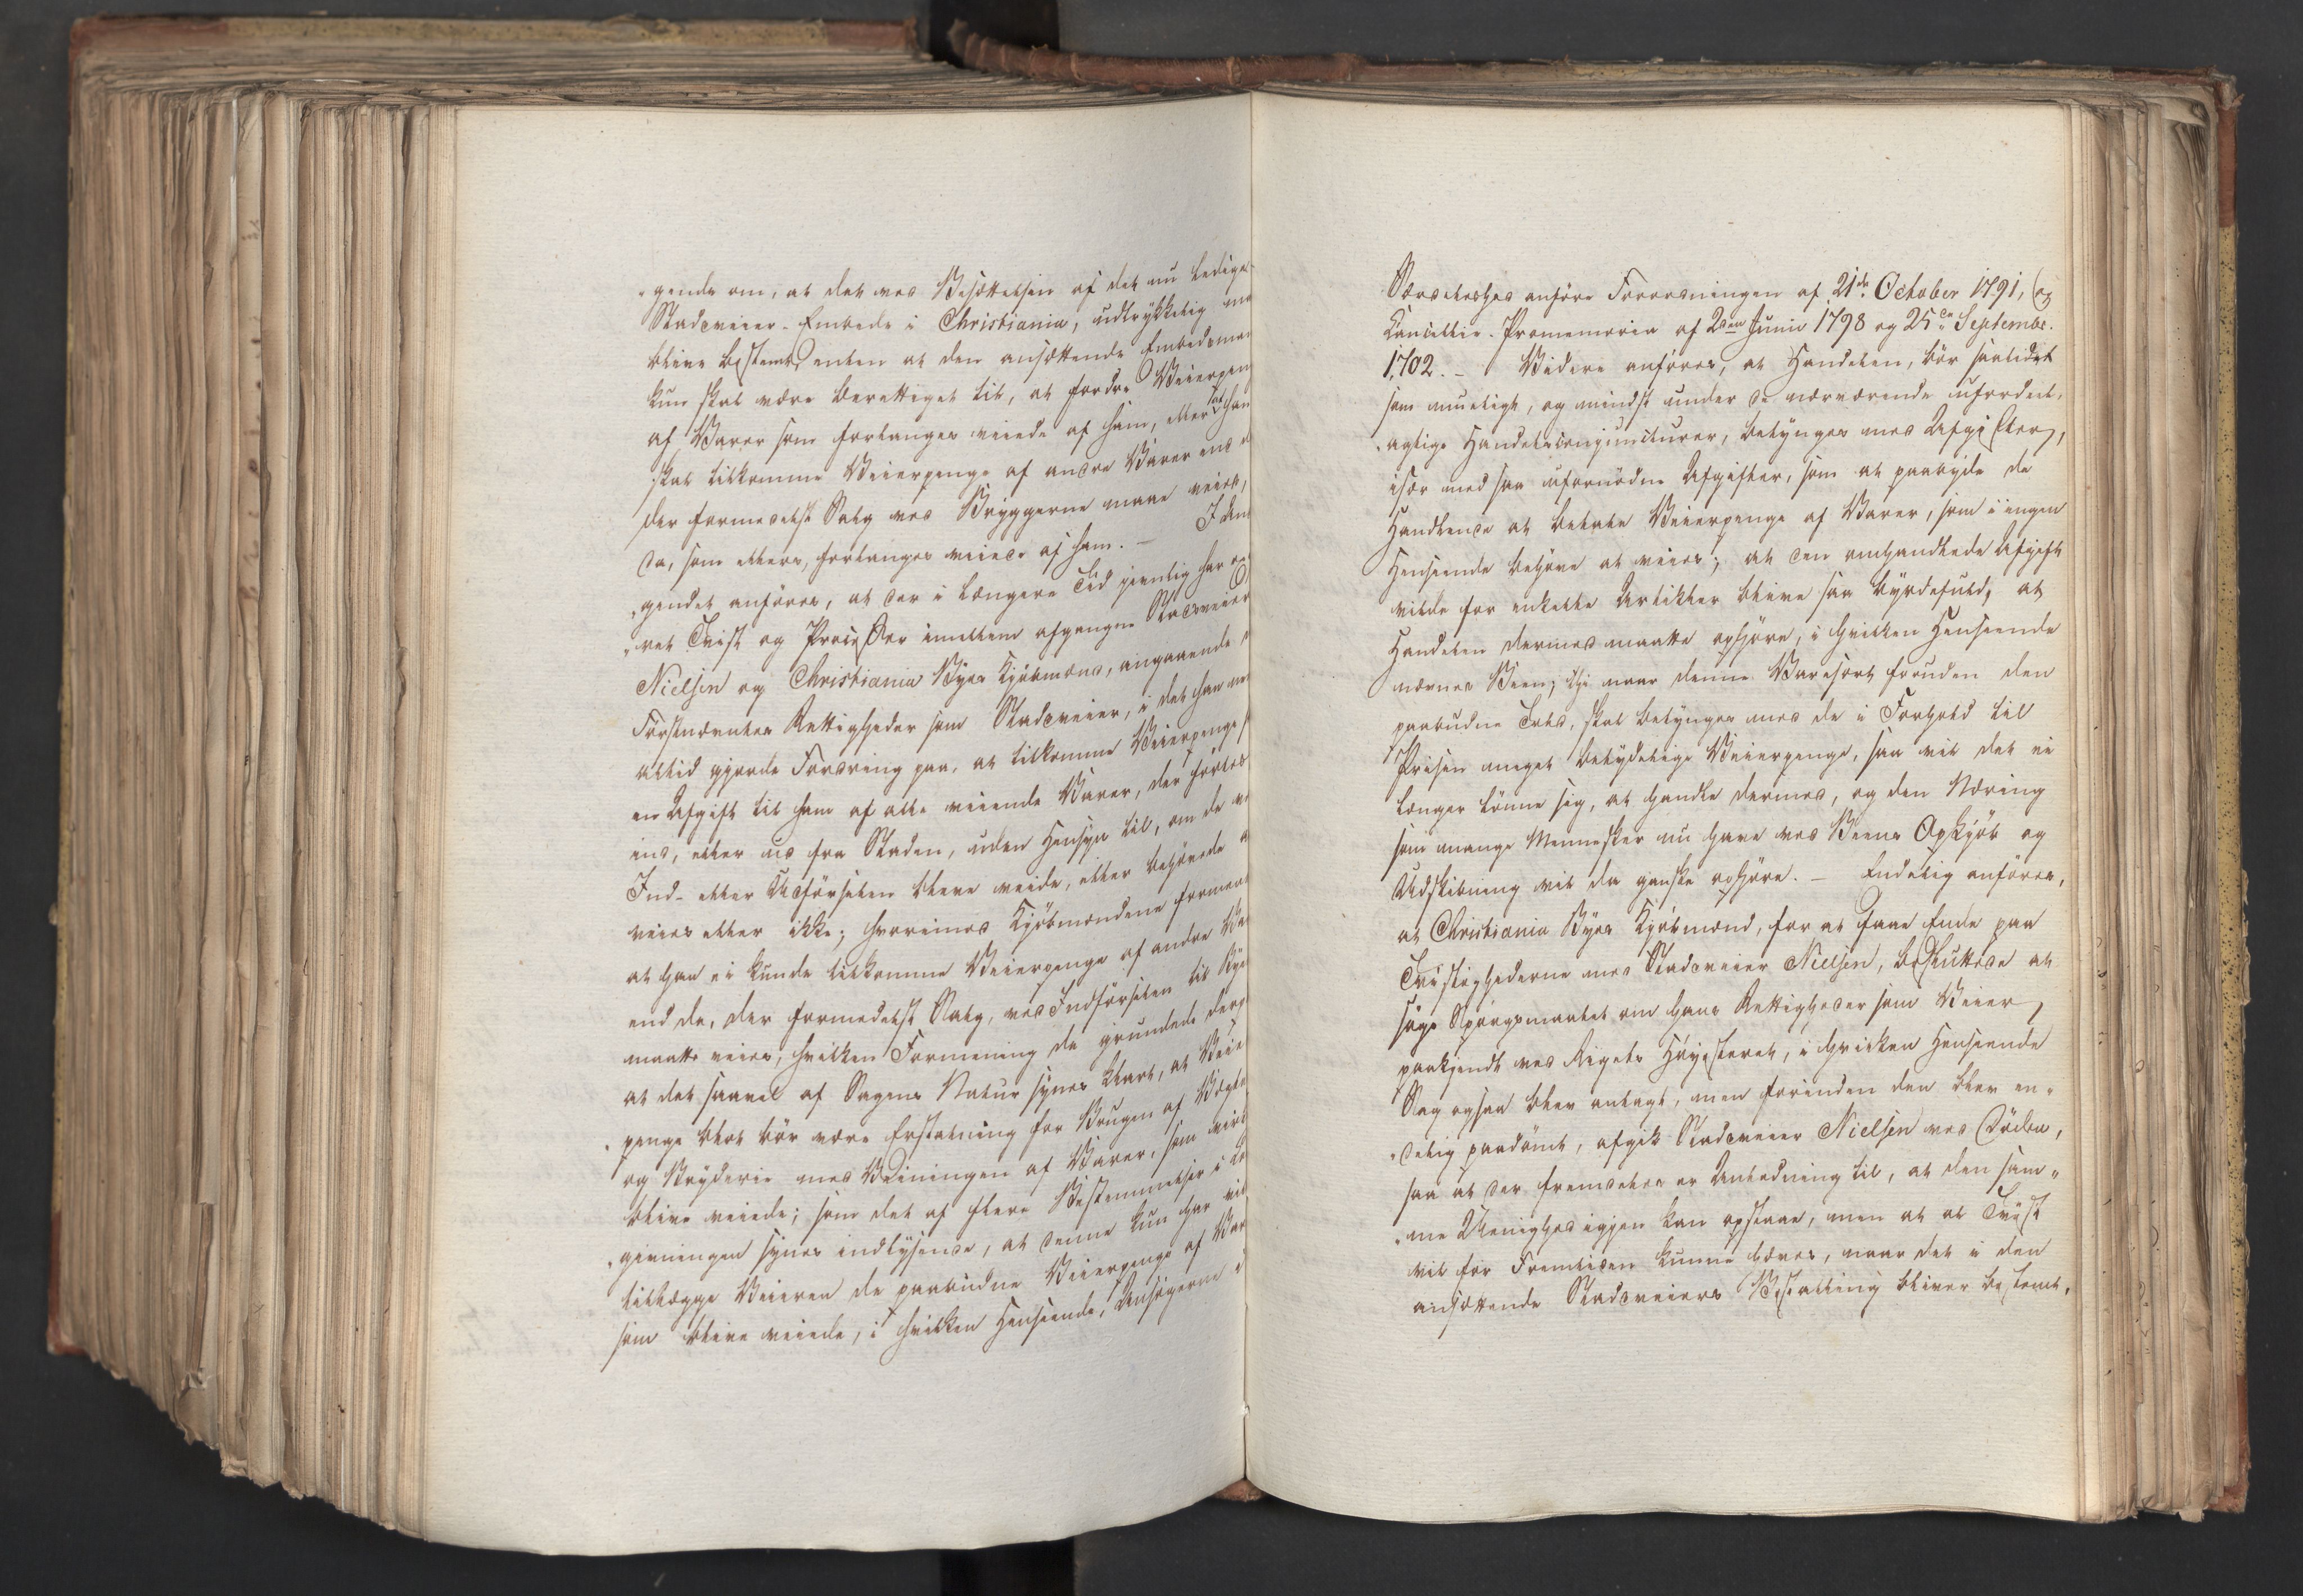 „gende om, at det ved Besættelsen af det nu ledige
Stadsveier-Embede i Christiania, udtrykkelig maa
blive bestemt, enten at den ansættende Embedsman
kun skal være berettiget til, at fordre Veierpen
af Varer som forlanges veiede af ham, eller at han
skal tilkomme Veierpenge af andre Varer end d
der formedelst Salg ved Bryggerne maae veies,
da, som ellers, forlanges veiede af ham. — I den
„gendet anføres, at der i længere Tid jevnlig har
„ret Tvist og Processer imellem afgangne Stadsveier
Nielsen og Christiania Byes Kjöbmænd, angaaende
Förstnævntes Rettigheder som Stadsveier, i det han
altid gjorde Fordring paa, at tilkomme Veierpenge
en Afgift til ham af alle veiende Varer, der førtes
ind, eller ud fra Staden, uden Hensyn til, om de v
Ind- eller Udførselen bleve veide, eller behøvede a
veies eller ikke; hvorimod Kjöbmændene formeen
at han ei kunde tilkomme Veierpenge af andre Va
end de, der formedelst Salg, ved Indförselen til Bye
maatte veies, hvilken Formening de grundede derp
at det saavel af Sagens Natur synes klart, at Veie
„penge blot bör være Erstatning for Brugen af Vægte
og Bryderie med Veiningen af Varer, som virk
blive veiede; som det af flere Bestemmelser i Lo
„givningen synes indlysende, at denne kun har vil
tillægge Veieren de paabudne Veierpenge af Var
som blive veiede, i hvilken Henseende, Ansögerne i
Særdeleshed anföre Forordningen af 21de October 1791, og
Cancellie-Promemoria af 2den Junii 1798 og 25de Septembr.
1702. — Videre anföres, at Handelen, bör saalidet
som mueligt, og mindst under de nærværende ufordeel„
„agtige Handelsconjuncturer, betynges med Afgifter,
især med saa ufornödne Afgifter, som at paabyde de
Handlende at betale Veierpenge af Varer, som i ingen
Henseende behöve at veies; at den omhandlede Afgift
vilde for enkelte Artikler blive saa byrdefuld, at
Handelen dermed maatte ophjöre, i hvilken Henseende
nævnes Been; thi naar denne Varesort foruden den
paabudne Told, skal betynges med de i Forhold til
Prisen meget betydelige Veierpenge, saa vil det ei
længer lönne sig, at handle dermed, og den Næring
som mange Mennesker nu have ved Beens Opkjöb og
Udskibning vil da ganske ophjöre. — Endelig anföres,
at Christiania Byes Kjöbmænd, for at faae Ende paa
Tvistighederne med Stadsveier Nielsen, besluttede at
söge Spörgsmaalet om hans Rettigheder som Veier,
paakjendt ved Rigets Höyesteret, i hvilken Henseende
Sag ogsaa blev anlagt, men forinden den blev en„
„delig paadömt, afgik Stadsveier Nielsen ved Döden,
saa at der fremdeles er Anledning til, at den sam„
„me Uenighed igjen kan opstaae, men at al Tvist
vil for Fremtiden kunne hæves, naar det i den
ansættende Stadsveiers Bestalling bliver bestemt,